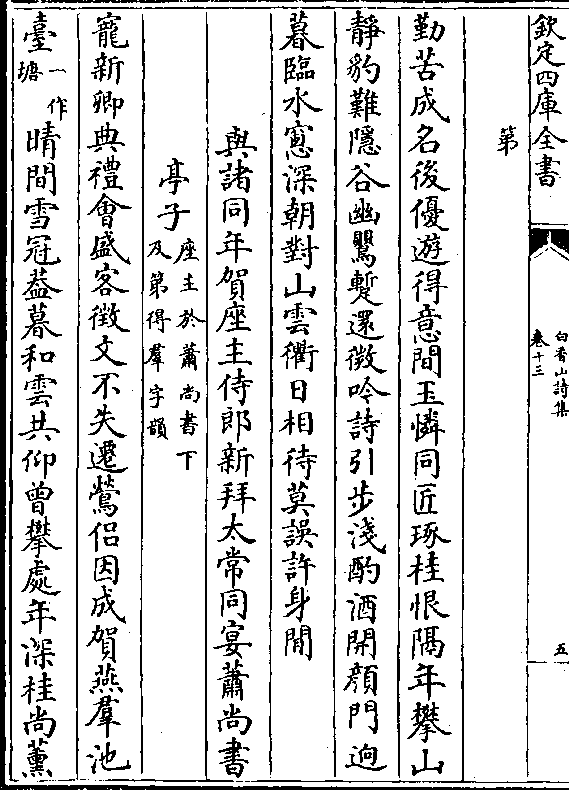 欽定四庫全書
白香山詩集
卷十三
五
第
勤苦成名後優遊得意間玉憐同匠琢桂恨隔年攀山
靜豹難隱谷幽鸎蹔還微吟詩引步淺酌酒開顔門迥
暮臨水窻深朝對山雲衢日相待莫誤許身閒
與諸同年賀座主侍郎新拜太常同宴蕭尚書
亭子座主於蕭尚書下
及第得羣字韻
寵新卿典禮會盛客徴文不失遷鶯侣因成賀燕羣池
臺一作
塘晴間雪冠葢暮和雲共仰曾攀處年深桂尚薫